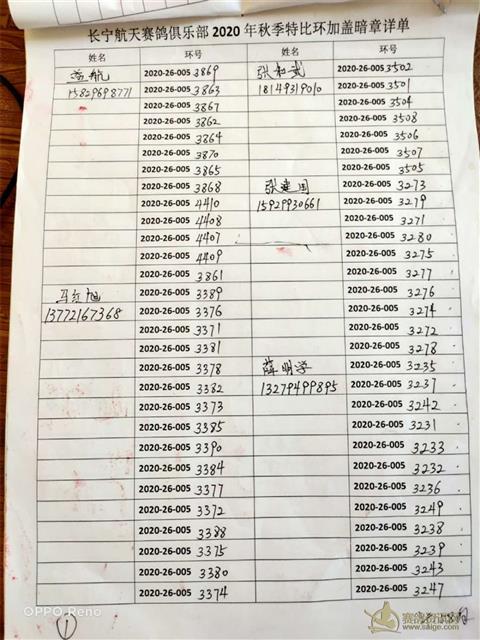 长宁航天赛鸽俱乐部 2020 年秋季特比环加盖暗章详单
姓名 环号 姓名 环号
蓝航 2020-26-005 3869 张和武 2020-26-005 3502
15829698771 2020-26-005 3863 18149319010 2020-26-005 3501
2020-26-005 3867 2020-26-005 3504
2020-26-005 3862 2020-26-005 3508
2020-26-005 3864 2020-26-005 3506
2020-26-005 3870 2020-26-005 3507
2020-26-005 3865 2020-26-005 3505
2020-26-005 3868 张建国 2020-26-005 3273
2020-26-005 4410 15929930661 2020-26-005 3279
2020-26-005 4408 2020-26-005 3271
2020-26-005 4407 2020-26-005 3280
2020-26-005 4409 2020-26-005 3275
2020-26-005 3861 2020-26-005 3277
马红旭 2020-26-005 3389 2020-26-005 3276
13772167368 2020-26-005 3376 2020-26-005 3274
2020-26-005 3371 2020-26-005 3272
2020-26-005 3381 2020-26-005 3278
2020-26-005 3378 薛明学 2020-26-005 3235
2020-26-005 3382 13279499895 2020-26-005 3237
2020-26-005 3373 2020-26-005 3242
2020-26-005 3385 2020-26-005 3231
2020-26-005 3390 2020-26-005 3233
2020-26-005 3384 2020-26-005 3232
2020-26-005 3377 2020-26-005 3236
2020-26-005 3372 2020-26-005 3249
2020-26-005 3388 2020-26-005 3238
2020-26-005 3375 2020-26-005 3239
2020-26-005 3380 2020-26-005 3243
2020-26-005 3374 2020-26-005 3247
OPPO Reno
1
赛鸽资讯网
www.saige.com